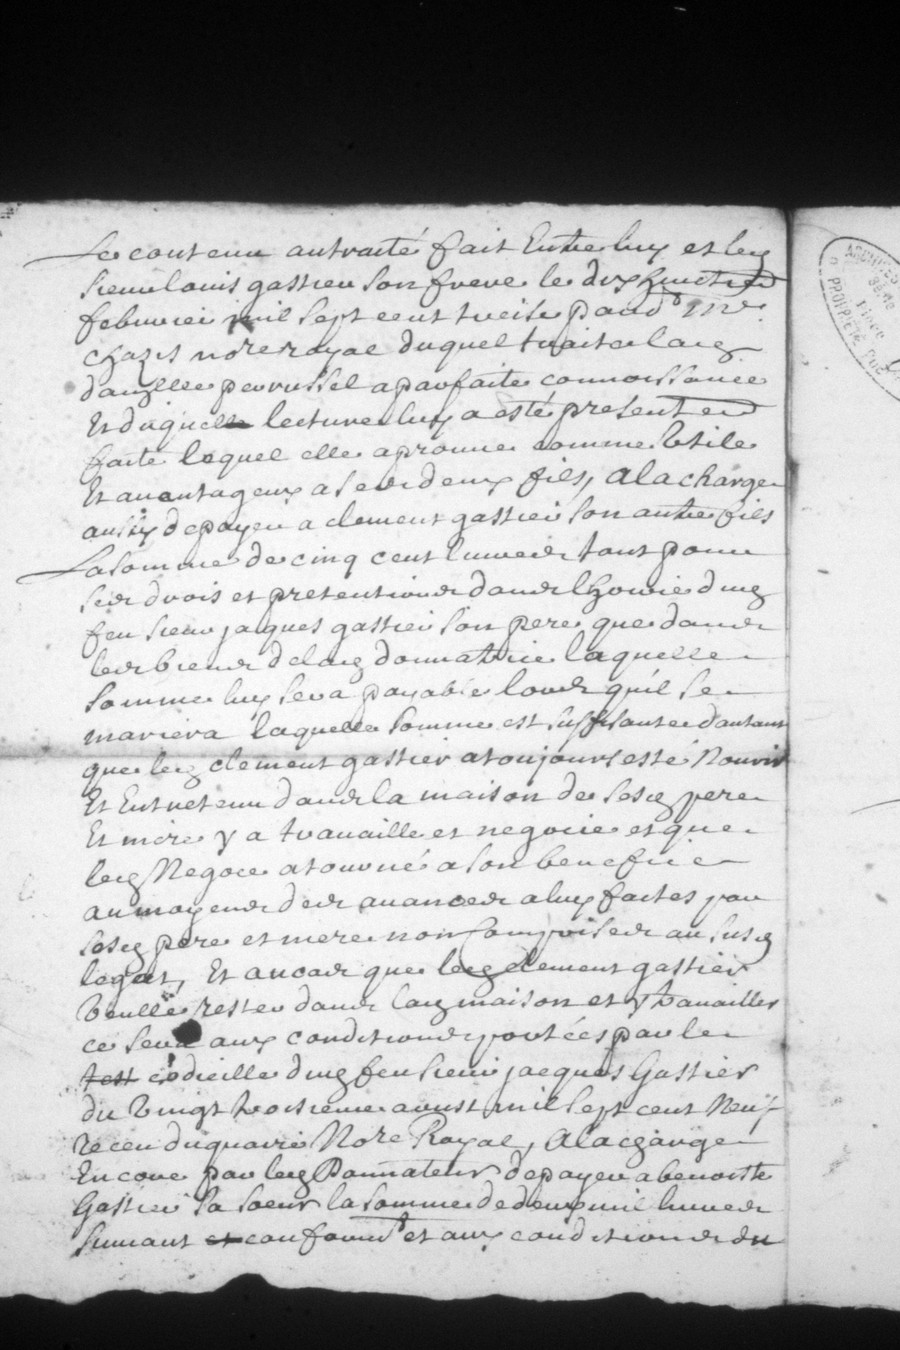 Le contenu au traité fait Entre luy et led
sieur louis gastier son frere le dix huictie
febvrier mil sept cent treise pard.t m.e
chazes no.re royal duquel traité lad
dam.elle peyrussel a parfaite connoissance
Et duquel lecture luy a esté presentem.t
faite lequel elle aprouve comme Utile
Et avantageux a ses deux fils, A la charge
aussy de payer a clement gastier son autre fils
La somme de cinq cent livres tant pour
ses drois et pretentions dans lhoirie dud
feu sieur jaques gastier son pere que dans
les biens de lad donnatrice laquelle
somme luy sera payable lors quil se
mariera laquelle somme est suffisante dautant
que led clement gastier a toujours esté Nourri
Et Entretenu dans la maison de sesd pere
Et mere y a travaille et negocie et que
led Negoce a tourné a son benefice
au moyens des avances a luy faites par
sesd pere et mere non comprises au susd
legat, Et au cas que led clement gastier
veulle rester dans lad maison et y travailler
ce sera aux conditions portées par le
test codicille dud feu sieur jacques Gastier
du vingt troisieme aoust mil sept cent Neuf
receu duquaire No.re Royal, A la charge
Encore par led Donnateur de payer a benoitte
Gastier sa soeur la somme de deux mil livres
suivant et conform.t et aux conditions du
ARCHIVES
PROPRIETE PUB